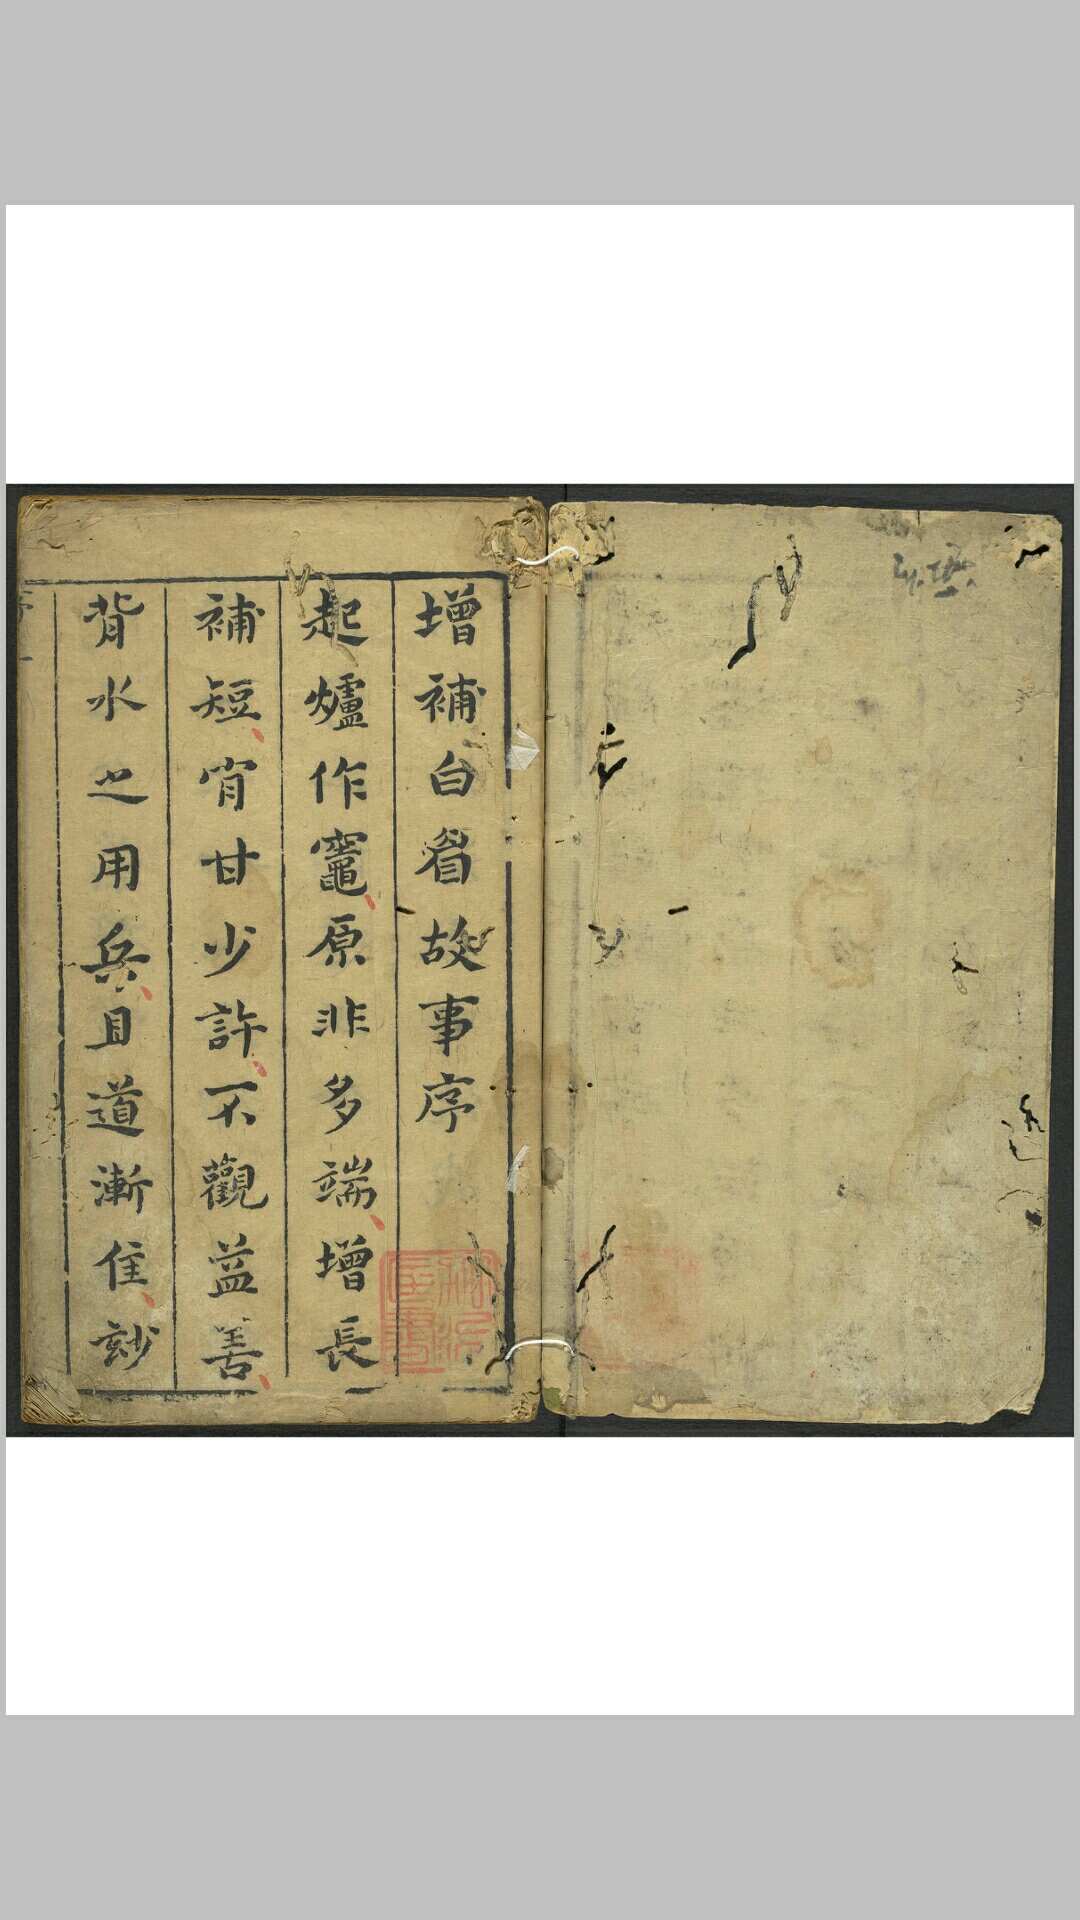 增補白睂故事序
起爐作竈原非多端增長
補短肎甘少許不觀益善
背水之用兵且道漸佳玅